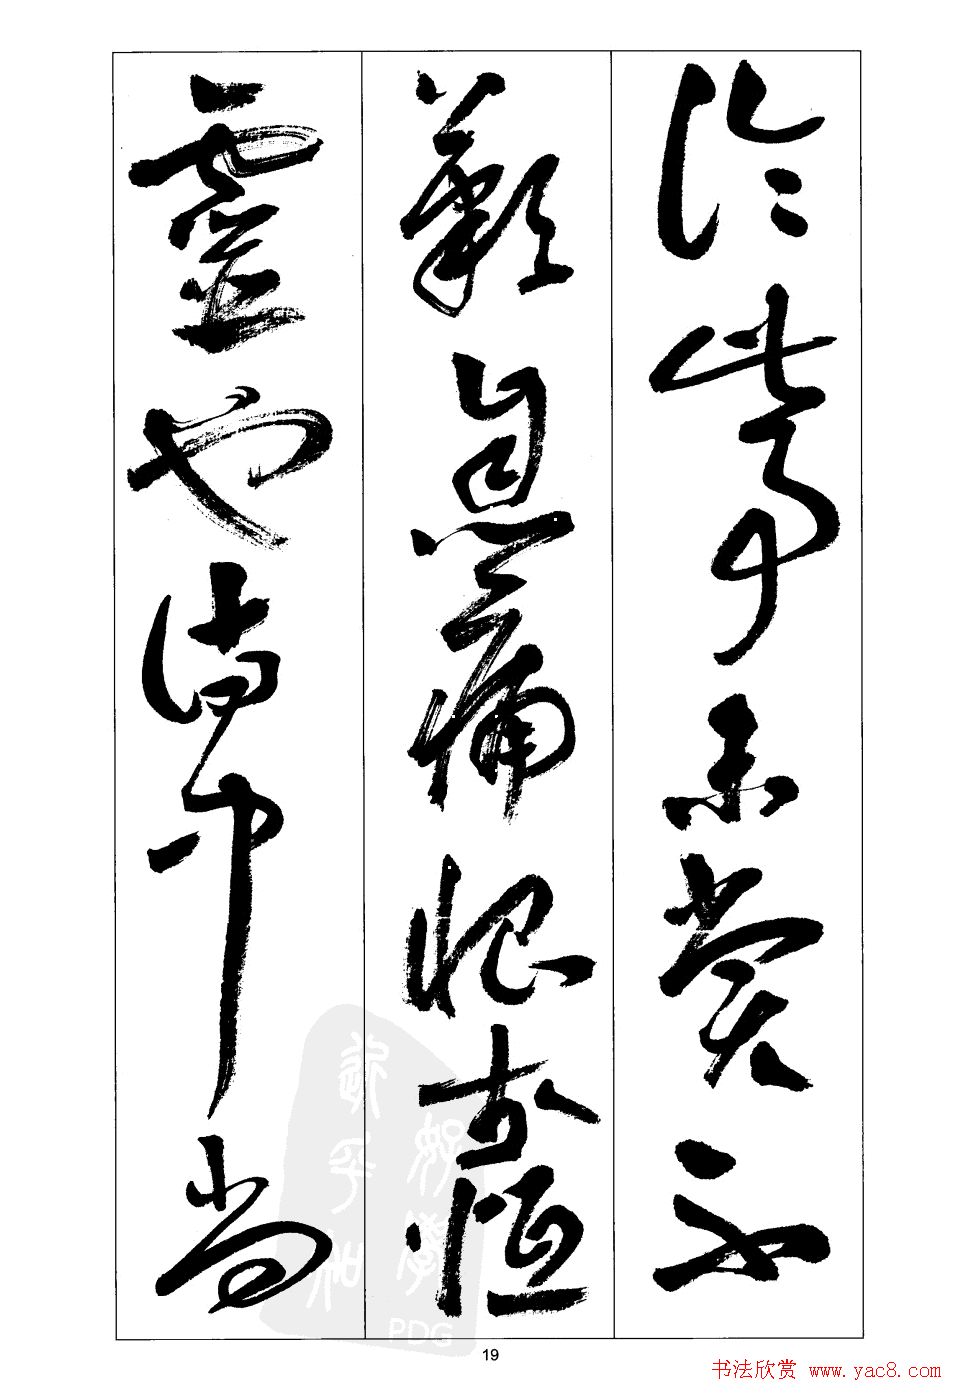 論此事未嘗不
歎息痛恨於桓
靈也侍中尚
PDG
19
书法欣赏 www.yac8.com